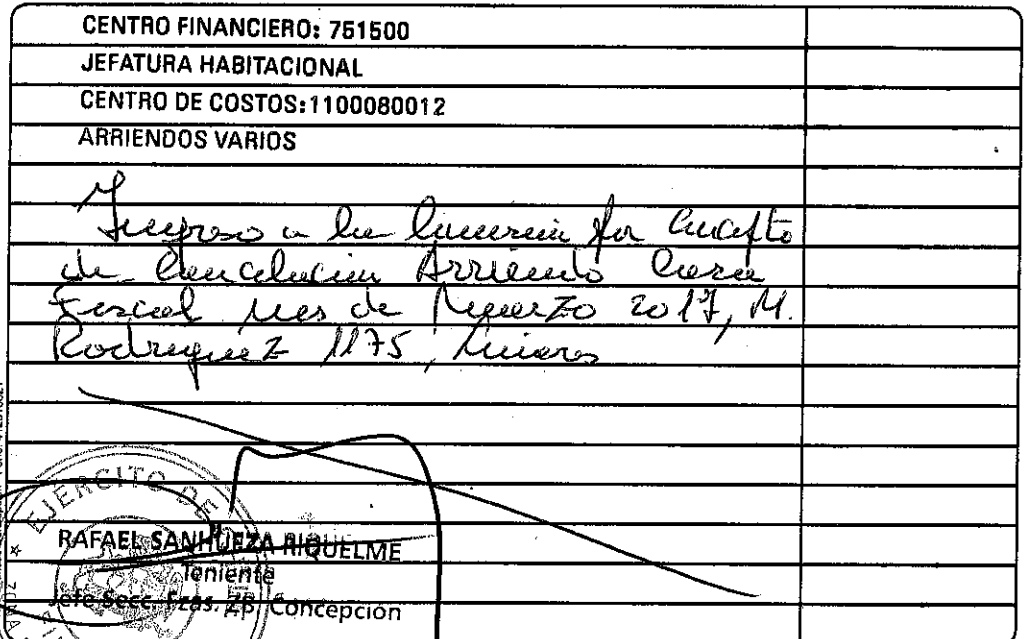 CENTRO FINANCIERO: 751500
JEFATURA HABITACIONAL
CENTRO DE COSTOS:1100080012
ARRIENDOS VARIOS
Ingreso a la por Concepto
de Cancelación Arriendo Casa
Fiscal mes de Marzo 2017, M.
Rodriguez 1175, Linares
EJERCITO DE
RAFAEL SANHUEZA RIQUELME
Teniente
Jefe Secc. Fzas. ZP. Concepción